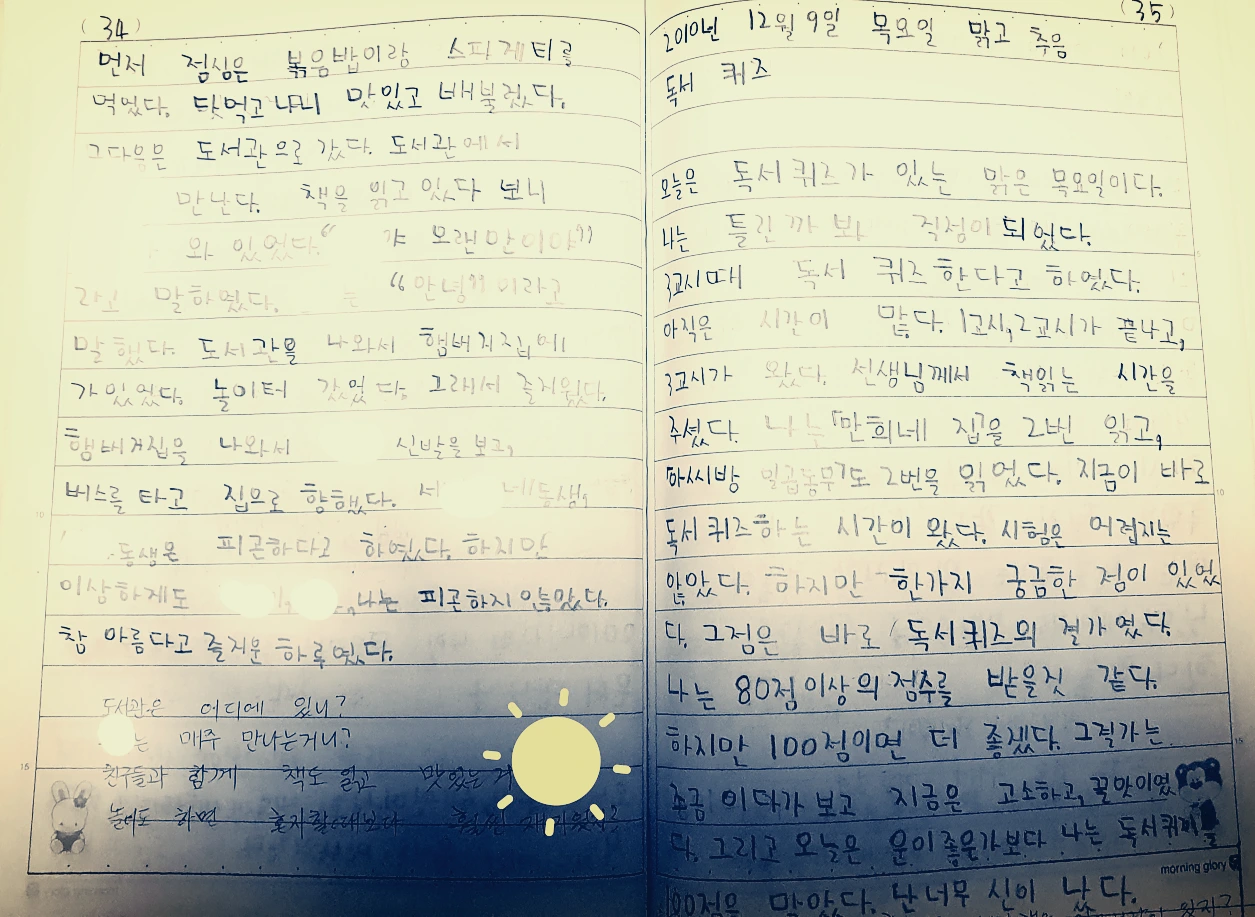 (34)
먼저 점심은 볶음밥이랑 스파게티를
먹었다. 닷먹고 나니 맛있고 배불렀다.
그다음은 도서관으로 갔다. 도서관에서
만난다. 책을 읽고 있다 보니
와 있었다." 가 오랜만이야"
라고 말하였다. 는 "안녕" 이라고
말했다. 도서관을 나와서 햄버거집에
가있었다. 놀이터 갔었다. 그래서 즐거웠다.
햄버거집을 나와서 신발을 보고,
버스를 타고 집으로 향했다. 네동생,
동생은 피곤하다고 하였다. 하지만
이상하게도 ,나는 피곤하지 않았다.
참 아름다고 즐거운 하루였다.
도서관은 어디에 있니?
는 매주 만나는거니?
친구들과 함께 책도 읽고 맛있는
놀이도 하면 혼자할때보다 훨씬
(35)
2010년 12월 9일 목요일 맑고 추움
독서 퀴즈
오늘은 독서퀴즈가 있는 맑은 목요일이다.
나는 틀린까 봐 걱정이 되었다.
3교시때 독서 퀴즈한다고 하였다.
아직은 시간이 많다. 1교시,2교시가 끝나고,
3교시가 왔다. 선생님께서 책읽는 시간을
주셨다. 나는「만희네 집」을 2번 읽고,
아씨방 일곱동무」도 2번을 읽었다. 지금이 바로
독서퀴즈하는 시간이 왔다. 시험은 어렵지는
않았다. 하지만 한가지 궁금한 점이 있었
다. 그점은 바로 독서퀴즈의 결가였다.
나는 80점이상의 점수를 받을것 같다.
하지만 100점이면 더 좋겠다. 그결가는
조금 이따가 보고 지금은 고소하고, 꿀맛이였
다. 그리고 오늘은 운이좋은가보다 나는 독서퀴즈를
100점을 맞았다. 난너무 신이 났다.
morning glory